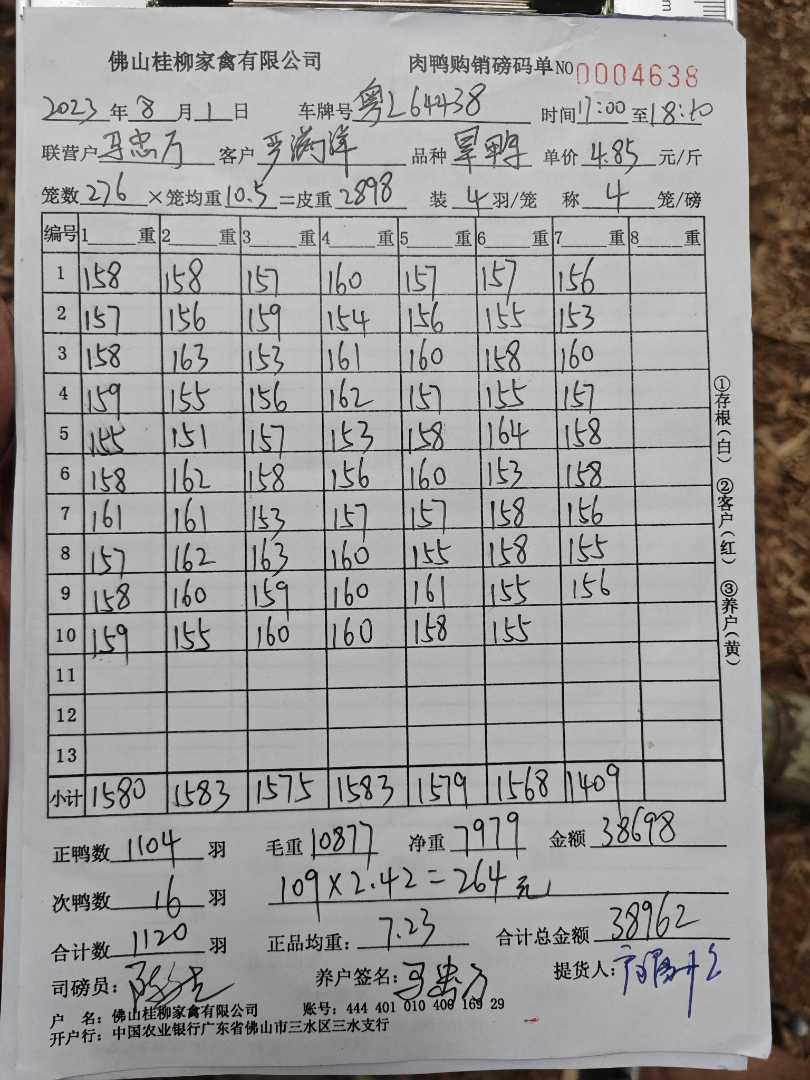 佛山桂柳家禽有限公司 肉鸭购销磅码单 NO 0004638
2023 年 8 月 1 日 车牌号 粤L64438 时间 17:00 至 18:10
联营户 马忠万 客户 品种 旱鸭 单价 4.85 元/斤
笼数 276 ×笼均重 10.5 =皮重 2898 装 4 羽/笼 称 4 笼/磅
编号 1 重 2 重 3 重 4 重 5 重 6 重 7 重 8 重
1 158 158 157 160 157 157 156
2 157 156 159 154 156 155 153
3 158 163 153 161 160 158 160
4 159 155 156 162 157 155 157
5 155 151 157 153 158 164 158
6 158 162 158 156 160 153 158
7 161 161 153 157 157 158 156
8 157 162 163 160 155 158 155
9 158 160 159 160 161 155 156
10 159 155 160 160 158 155
11
12
13
小计 1580 1583 1575 1583 1579 1568 1409
正鸭数 1104 羽 毛重 10877 净重 7979 金额 38698
次鸭数 16 羽 109×2.42=264元
合计数 1120 羽 正品均重: 7.23 合计总金额 38962
司磅员: 养户签名: 马忠万 提货人:
户 名: 佛山桂柳家禽有限公司 账号: 444 401 010 400 169 29
开户行: 中国农业银行广东省佛山市三水区三水支行
①存根(白) ②客户(红) ③养户(黄)